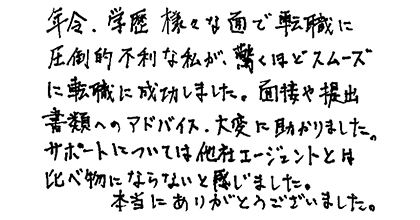 年令、学歴 様々な面で転職に
圧倒的不利な私が、驚くほどスムーズ
に転職に成功しました。面接や提出
書類へのアドバイス、大変に助かりました。
サポートについては他社エージェントとは
比べ物にならないと感じました。
本当にありがとうございました。